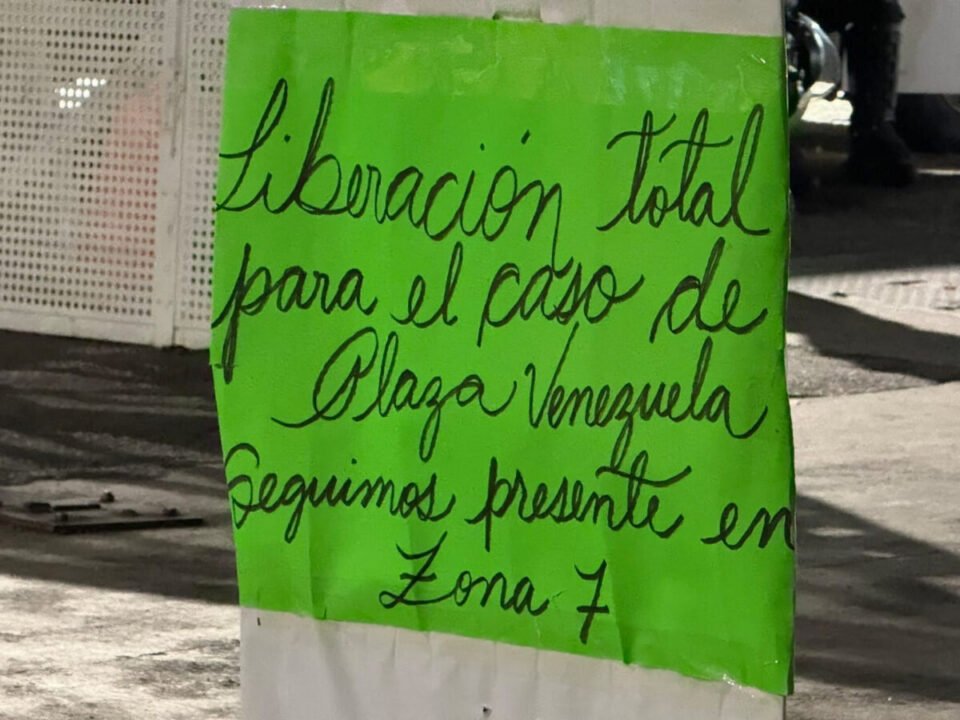 Liberación total
para el caso de
Plaza Venezuela
Seguimos presente en
Zona 7